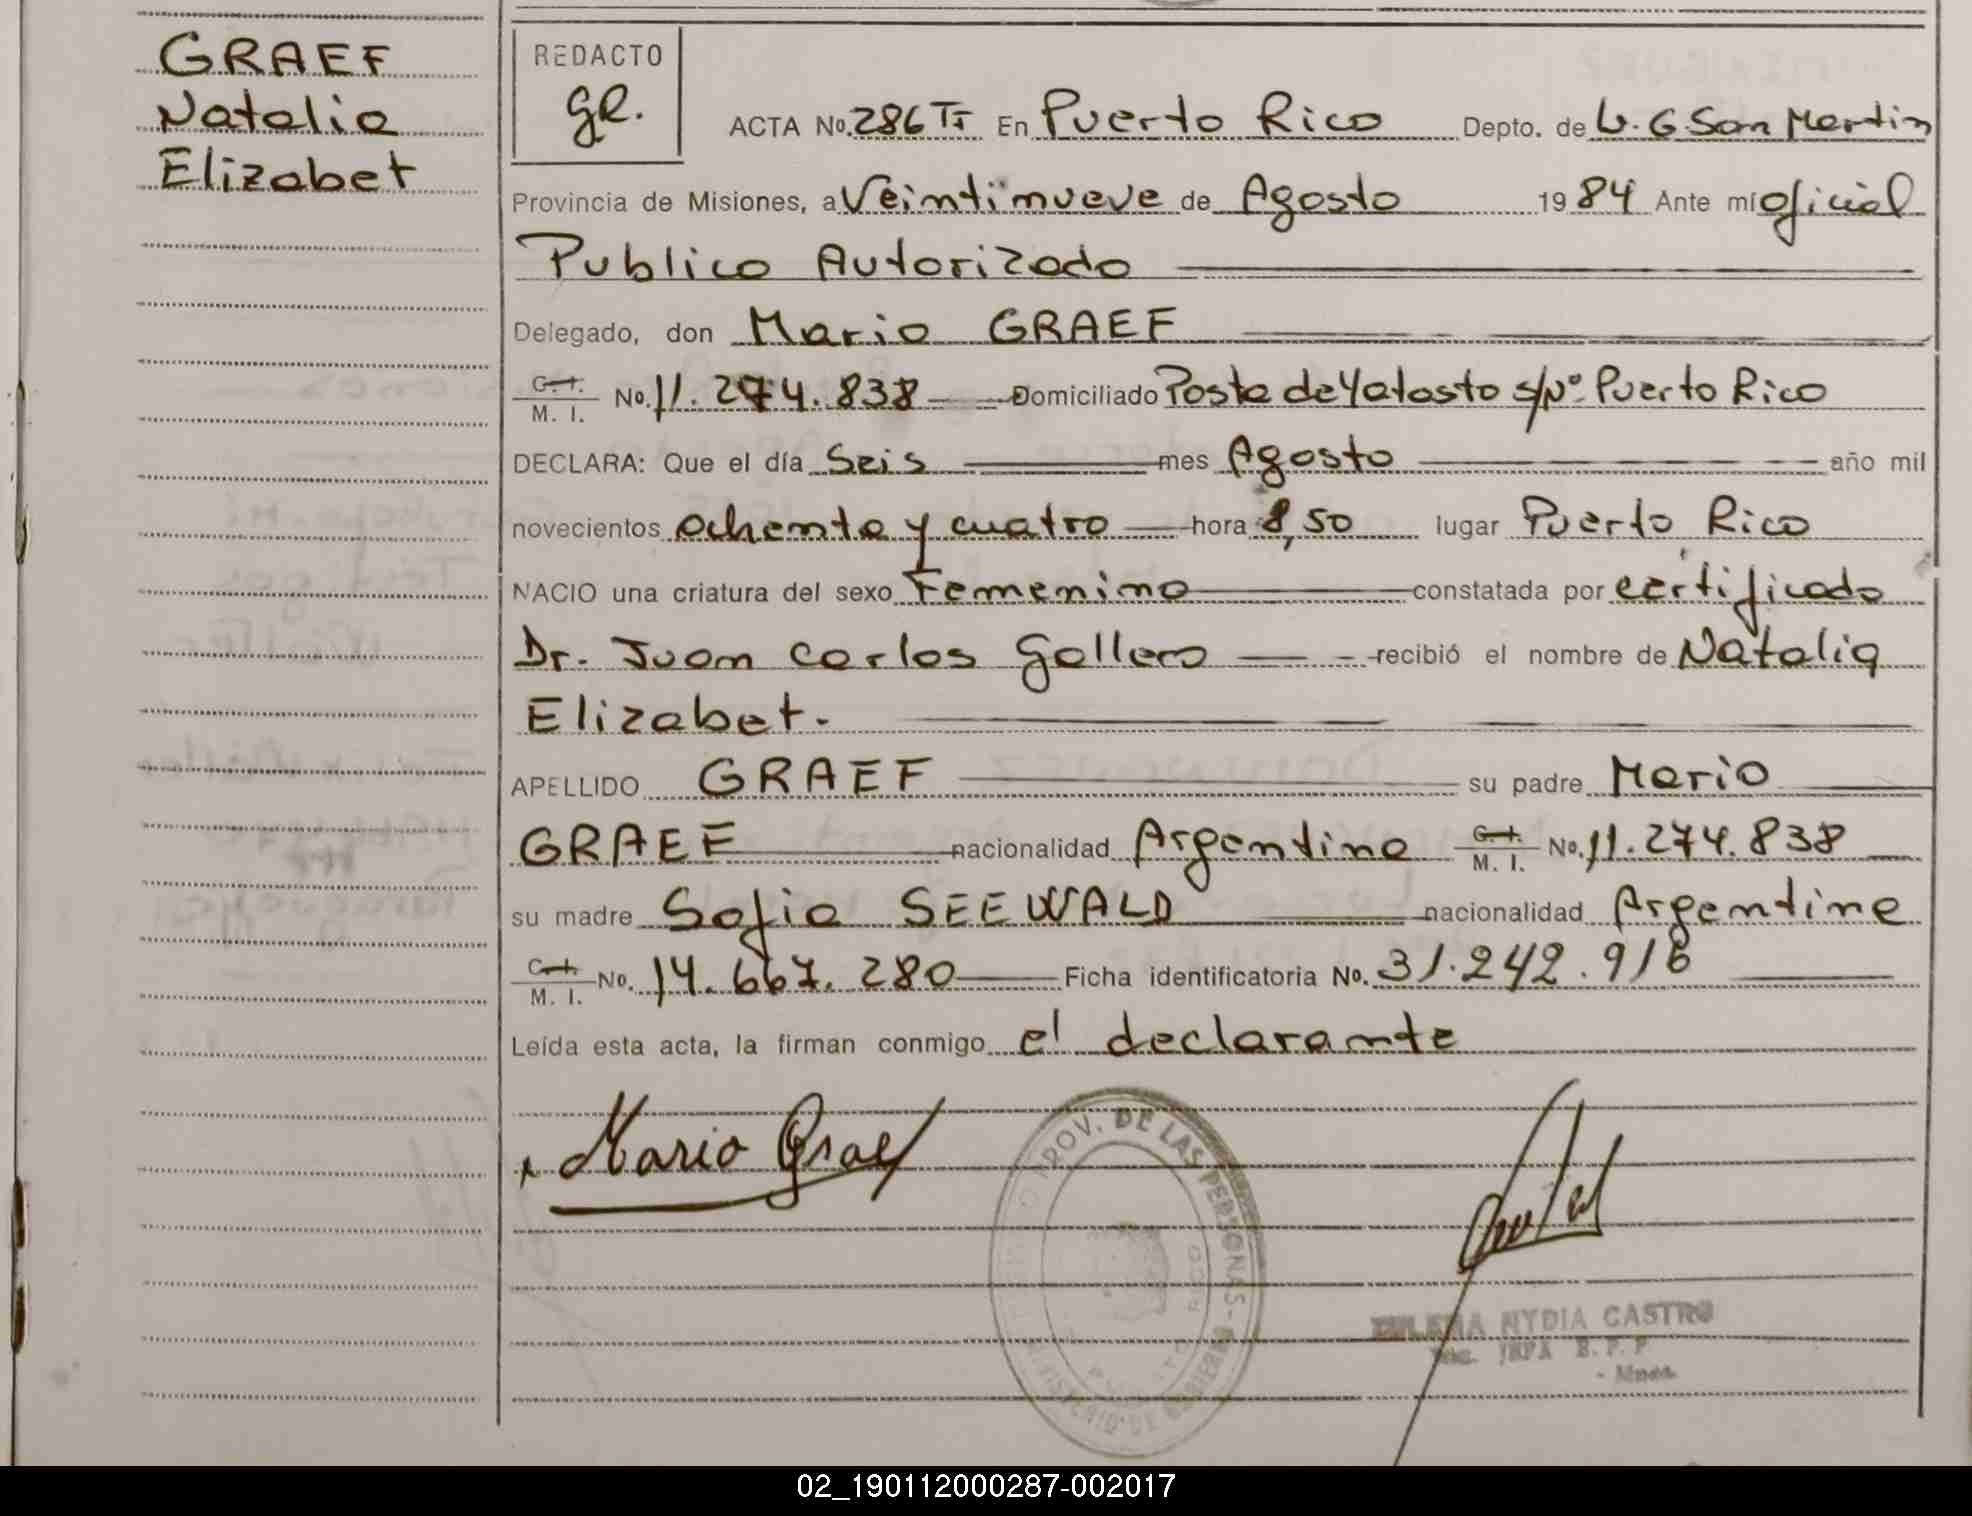 GRAEF
Natalia
Elizabet
REDACTO
gR.
ACTA No. 286 TI En Puerto Rico Depto. de L. G. San Martin
Provincia de Misiones, a Veintinueve de Agosto 19 84 Ante mí oficial
Publico Autorizado
Delegado, don Mario GRAEF
C. I. M. I. No. 11.274.838 Domiciliado Posta de Yatasto s/Nº Puerto Rico
DECLARA: Que el día Seis mes Agosto año mil
novecientos ochenta y cuatro hora 8,50 lugar Puerto Rico
NACIO una criatura del sexo Femenino constatada por certificado
Dr. Juan Carlos Gallero recibió el nombre de Natalia
Elizabet.
APELLIDO GRAEF su padre Mario
GRAEF nacionalidad Argentina C. I. M. I. No. 11.274.838
su madre Sofia SEEWALD nacionalidad Argentina
C. I. M. I. No. 14.667.280 Ficha identificatoria No. 31.242.916
Leída esta acta, la firman conmigo el declarante
Mario Graef
PROV. DE LAS PERSONAS - MINISTERIO DE GOBIERNO
PUERTO RICO
NYDIA CASTRO
02_190112000287-002017